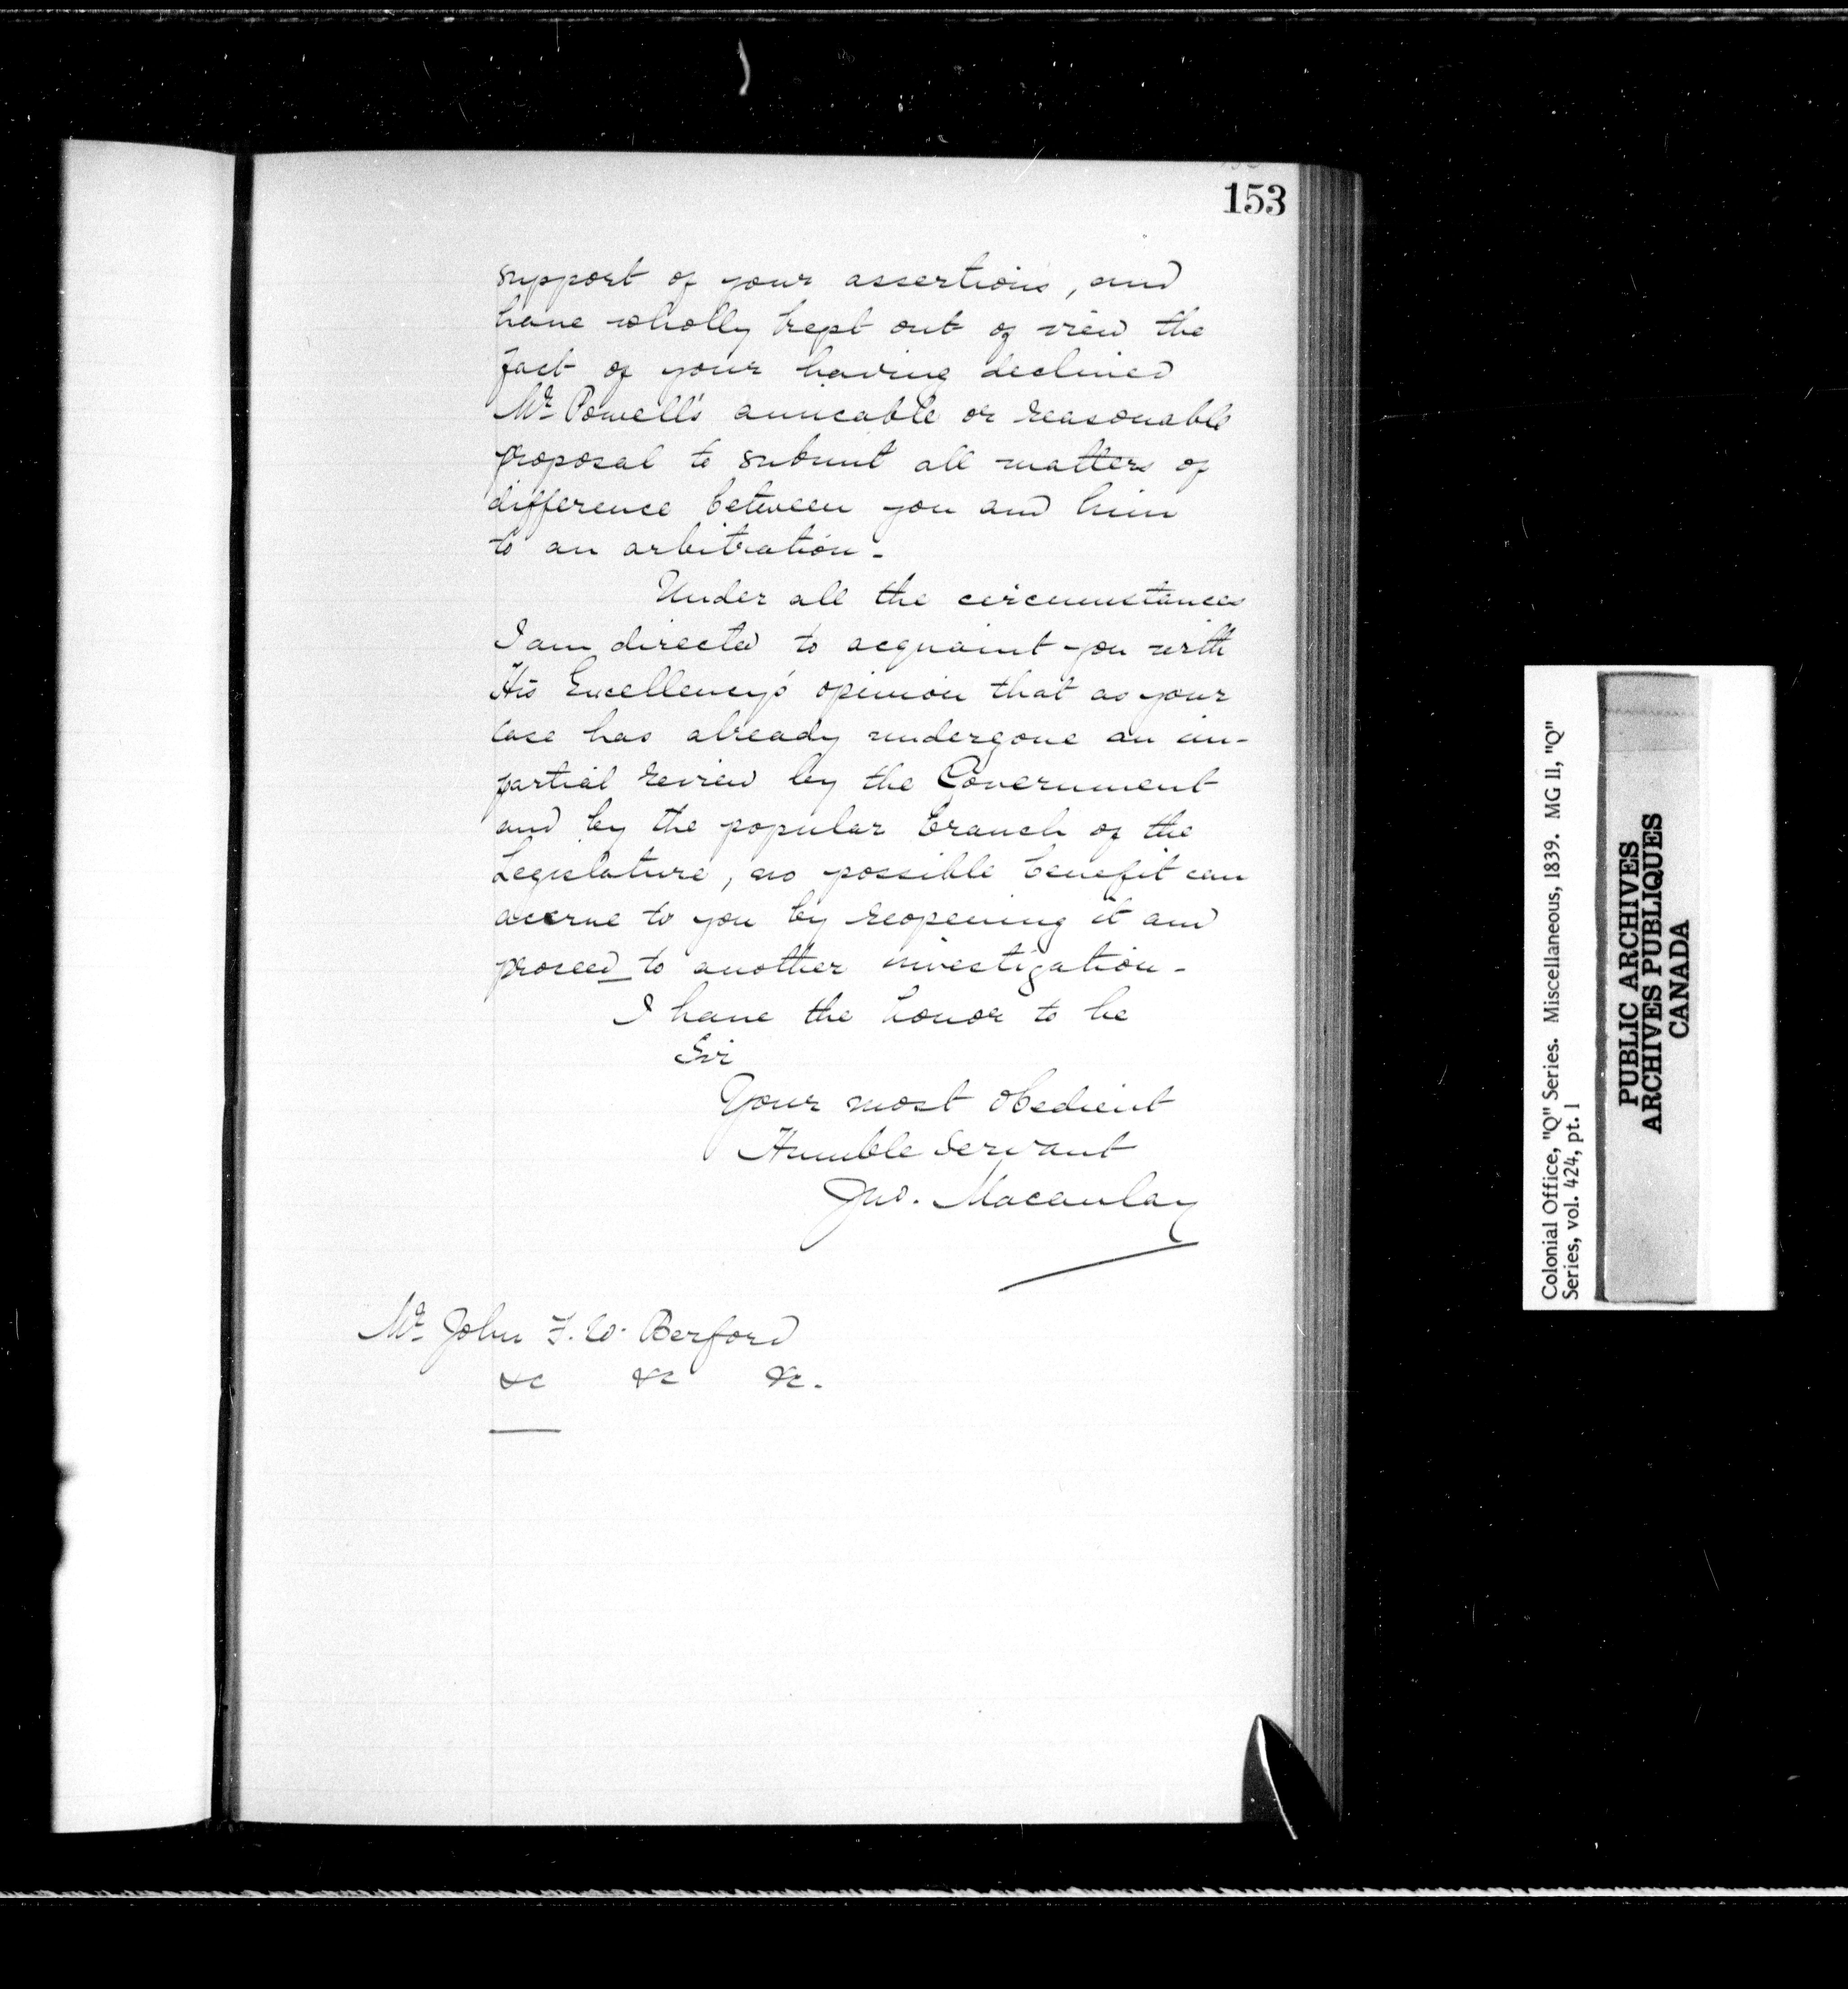 153
support of your assertions, and
have wholly kept out of view the
fact of your having declined
Mr Powell's amicable or reasonable
proposal to submit all matters of
difference between you and him
to an arbitration -
Under all the circumstances
I am directed to acquaint you with
His Excellency's opinion that as your
case has already undergone an im-
partial review by the Government
and by the popular branch of the
Legislature, no possible benefit can
accrue to you by reopening it and
proceed to another investigation -
I have the honor to be
Sir
Your most obedient
Humble Servant
Jno. Macaulay
Mr John F. W. Berford
&c &c &c.
Colonial Office, "Q" Series. Miscellaneous, 1839. MG 11, "Q"
Series, vol. 424, pt. 1
PUBLIC ARCHIVES
ARCHIVES PUBLIQUES
CANADA